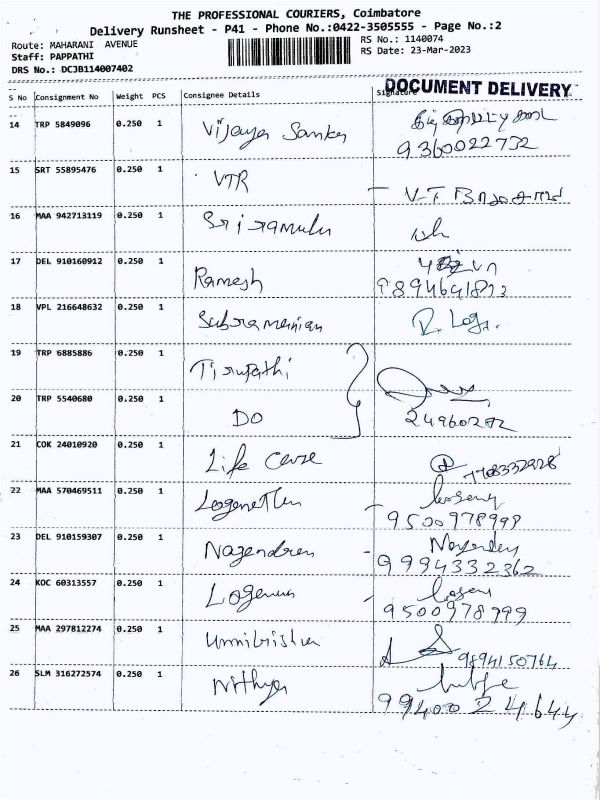 THE PROFESSIONAL COURIERS, Coimbatore
Delivery Runsheet - P41 - Phone No.:0422-3505555 - Page No.:2
Route: MAHARANI AVENUE
RS No.: 1140074
Staff: PAPPATHI
RS Date: 23-Mar-2023
DRS No.: DCJB114007402
DOCUMENT DELIVERY
S No Consignment No Weight PCS Consignee Details Signature
14 TRP 5849096 0.250 1 Vijaya Sankar
9360022732
15 SRT 55895476 0.250 1 VTR
16 MAA 942713119 0.250 1 Sriramulu
17 DEL 910160912 0.250 1 Ramesh
18 VPL 216648632 0.250 1 Subramanian
19 TRP 6885886 0.250 1 Tirupathi
20 TRP 5540680 0.250 1 DO
21 COK 24010920 0.250 1 Life Care
7708332928
22 MAA 570469511 0.250 1
9500978998
23 DEL 910159307 0.250 1 Nagendren
9994332362
24 KOC 60313557 0.250 1
9500978999
25 MAA 297812274 0.250 1
9894150764
26 SLM 316272574 0.250 1 Nithya
9940024644